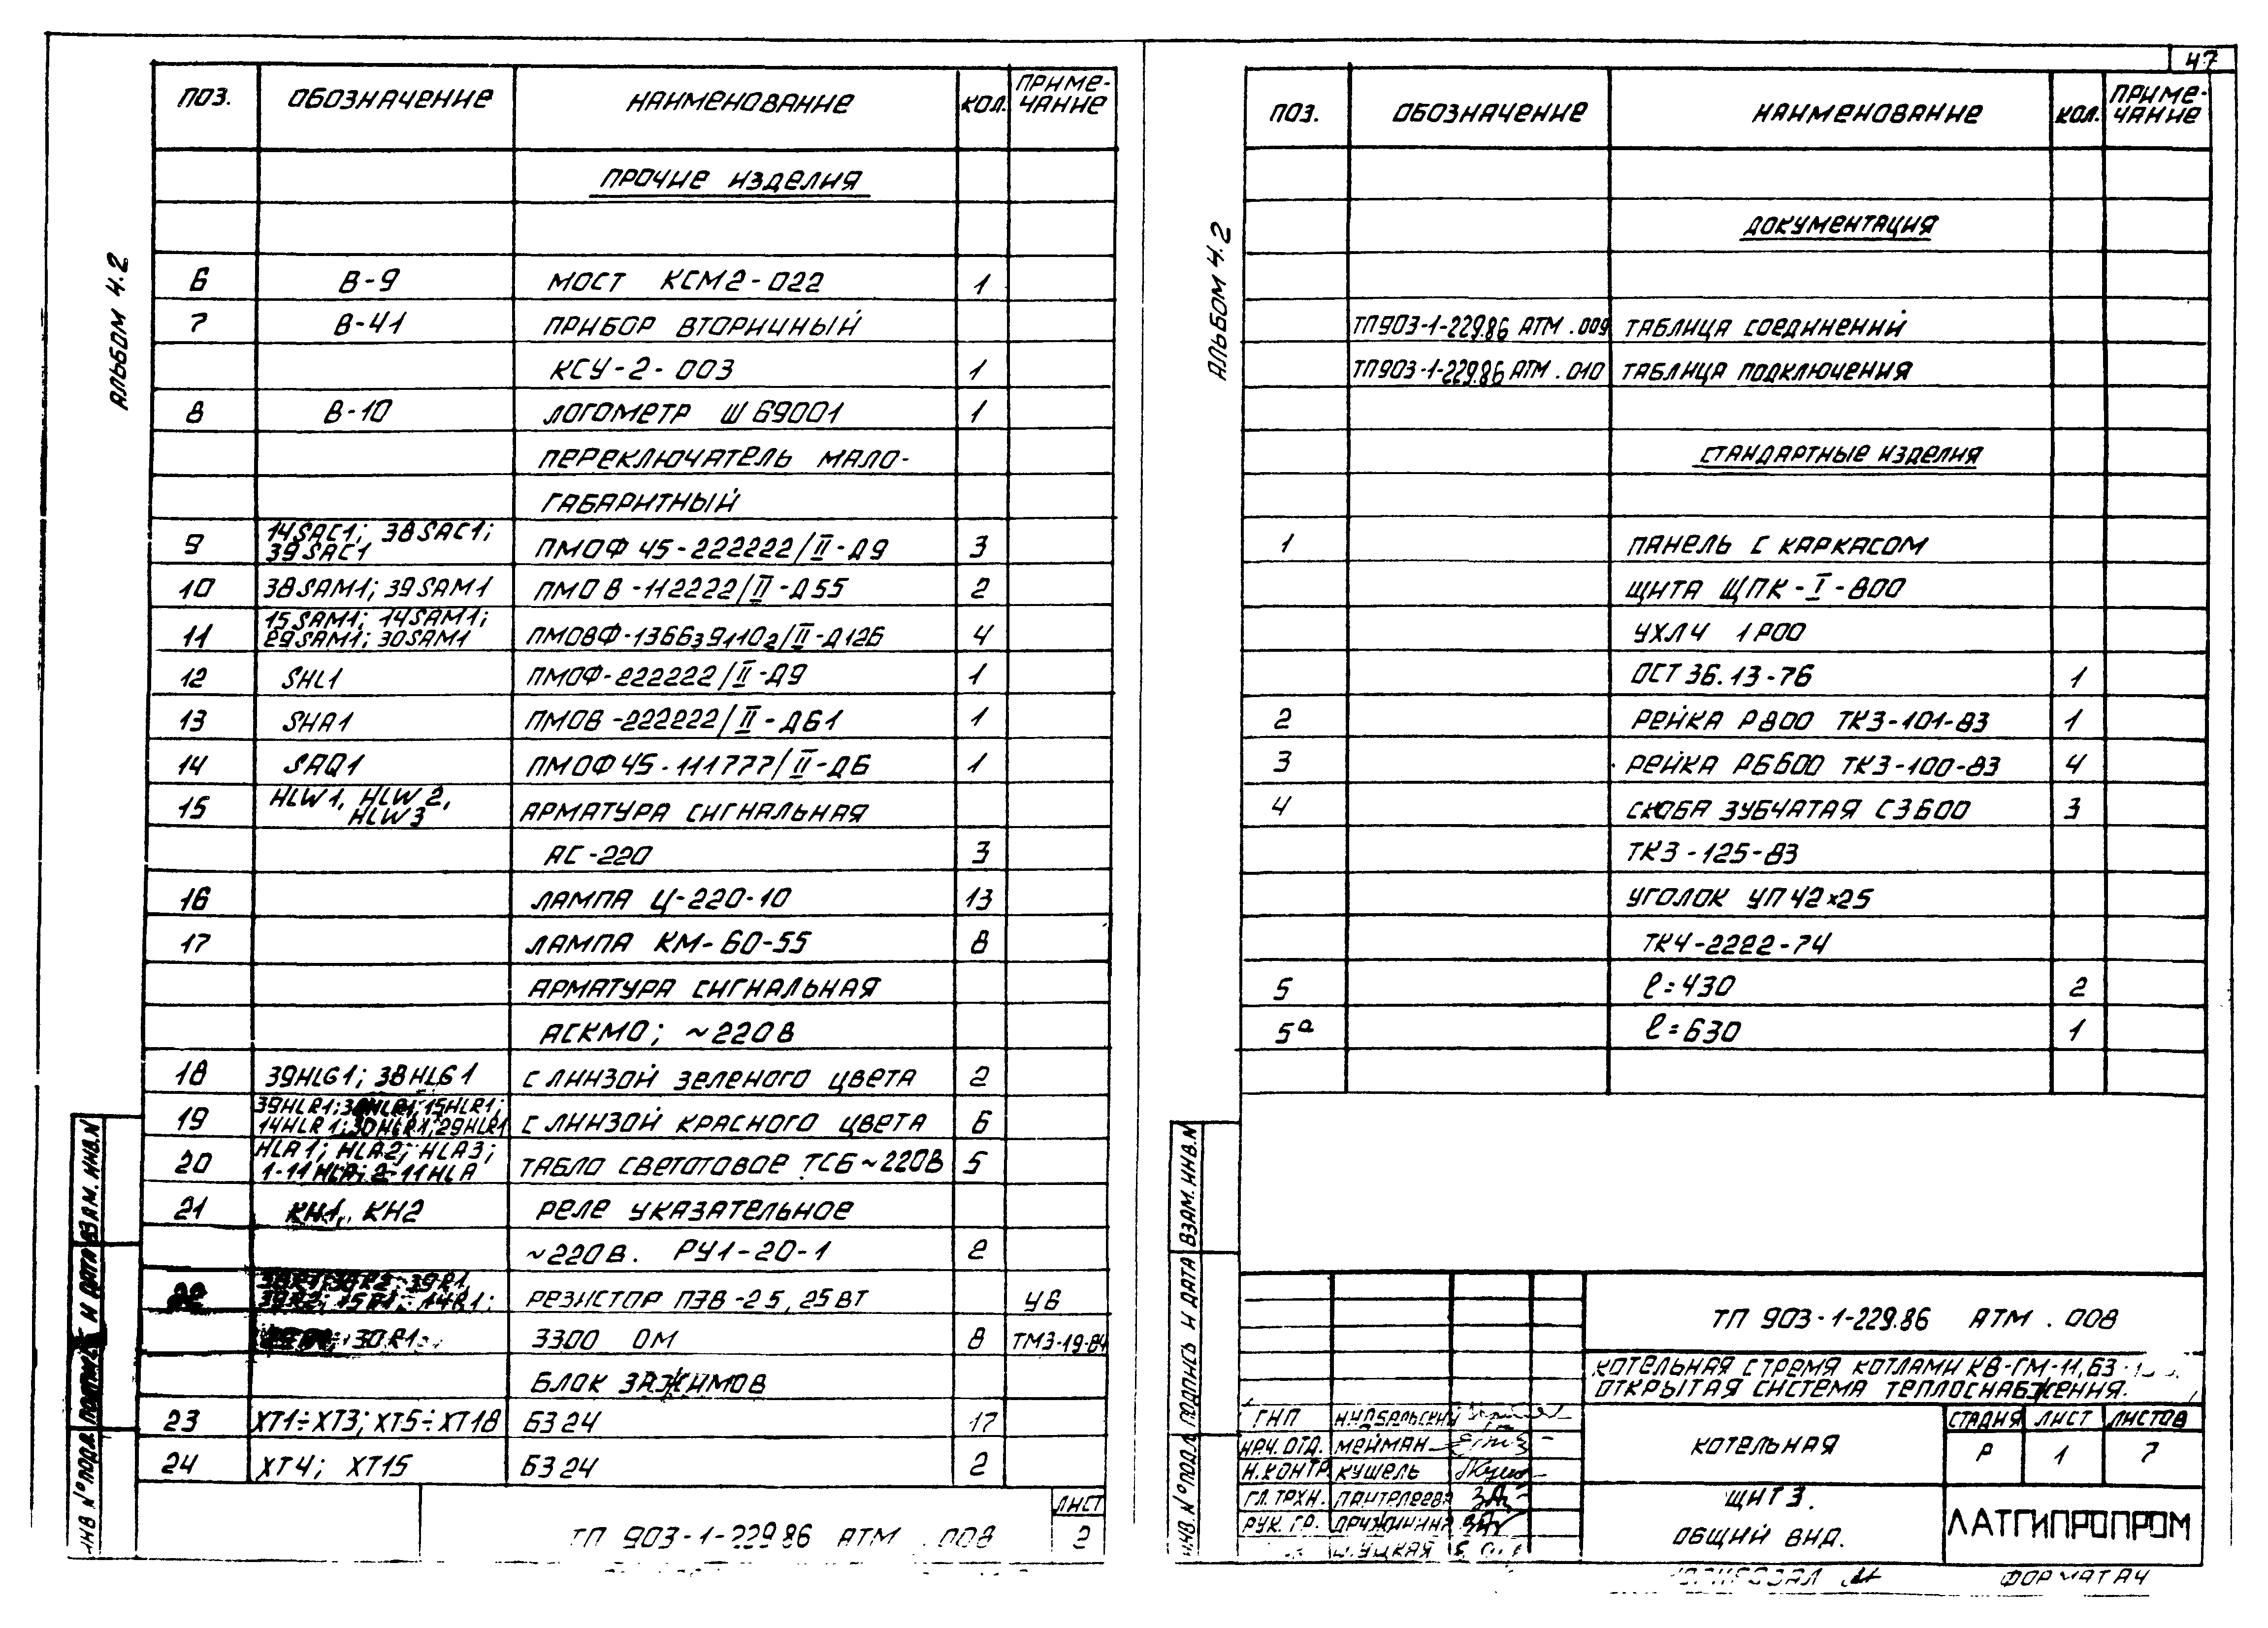 47
АЛЬБОМ 4.2
ПОЗ. ОБОЗНАЧЕНИЕ НАИМЕНОВАНИЕ КОЛ. ПРИМЕ-
ЧАНИЕ
ПРОЧИЕ ИЗДЕЛИЯ
6 В-9 МОСТ КСМ2-022 1
7 В-41 ПРИБОР ВТОРИЧНЫЙ
КСУ-2-003 1
8 В-10 ЛОГОМЕТР Ш 69001 1
ПЕРЕКЛЮЧАТЕЛЬ МАЛО-
ГАБАРИТНЫЙ
14SAC1; 38SAC1;
9 39SAC1 ПМОФ 45-222222/II-Д9 3
10 38SAM1; 39SAM1 ПМОВ-112222/II-Д55 2
15SAM1; 14SAM1;
11 29SAM1; 30SAM1 ПМОВФ-1366391102/II-Д126 4
12 SHL1 ПМОФ-222222/II-Д9 1
13 SHA1 ПМОВ-222222/II-Д61 1
14 SAQ1 ПМОФ45-111777/II-Д6 1
15 HLW1, HLW2,
HLW3 АРМАТУРА СИГНАЛЬНАЯ
АС-220 3
16 ЛАМПА Ц-220-10 13
17 ЛАМПА КМ-60-55 8
АРМАТУРА СИГНАЛЬНАЯ
АСКМО; ~220В
18 39HLG1; 38HLG1 С ЛИНЗОЙ ЗЕЛЕНОГО ЦВЕТА 2
39HLR1; 38HLR1; 15HLR1;
19 14HLR1; 30HLR1; 29HLR1 С ЛИНЗОЙ КРАСНОГО ЦВЕТА 6
HLA1; HLA2; HLA3;
20 1-11HLA; 2-11HLA ТАБЛО СВЕТОТОВОЕ ТСБ~220В 5
21 КН1, КН2 РЕЛЕ УКАЗАТЕЛЬНОЕ
~220В. РУ1-20-1 2
22 38R1; 38R2; 39R1,
39R2; 15R1; 14R1; РЕЗИСТОР ПЭВ-25, 25ВТ У6
30R1 3300 ОМ 8 ТМ3-19-84
БЛОК ЗАЖИМОВ
23 ХТ1÷ХТ3; ХТ5÷ХТ18 БЗ 24 17
24 ХТ4; ХТ15 БЗ 24 2
ТП 903-1-229.86 АТМ .008
ЛИСТ
2
ИНВ N°ПОДЛ. ПОДПИСЬ И ДАТА ВЗАМ. ИНВ.N
АЛЬБОМ 4.2
ПОЗ. ОБОЗНАЧЕНИЕ НАИМЕНОВАНИЕ КОЛ. ПРИМЕ-
ЧАНИЕ
ДОКУМЕНТАЦИЯ
ТП903-1-229.86 АТМ.009 ТАБЛИЦА СОЕДИНЕНИЙ
ТП903-1-229.86 АТМ.010 ТАБЛИЦА ПОДКЛЮЧЕНИЯ
СТАНДАРТНЫЕ ИЗДЕЛИЯ
1 ПАНЕЛЬ С КАРКАСОМ
ЩИТА ЩПК-I-800
УХЛ4 1Р00
ОСТ 36.13-76 1
2 РЕЙКА Р800 ТК3-101-83 1
3 РЕЙКА РБ600 ТК3-100-83 4
4 СКОБА ЗУБЧАТАЯ СЗ600 3
ТК3-125-83
УГОЛОК УП 42×25
ТК4-2222-74
5 ℓ=430 2
5а ℓ=630 1
ИНВ. N°ПОДЛ. ПОДПИСЬ И ДАТА ВЗАМ. ИНВ.N
ТП 903-1-229.86 АТМ .008
КОТЕЛЬНАЯ С ТРЕМЯ КОТЛАМИ КВ-ГМ-11,63-
ОТКРЫТАЯ СИСТЕМА ТЕПЛОСНАБЖЕНИЯ.
ГИП
НАЧ. ОТД. МЕЙМАН
Н.КОНТР КУШЕЛЬ
ГЛ. ТЕХН. ПАНТЕЛЕЕВА
РУК. ГР. ДРУЖИНИНА
КОТЕЛЬНАЯ
СТАДИЯ ЛИСТ ЛИСТОВ
Р 1 7
ЩИТ 3.
ОБЩИЙ ВИД.
ЛАТГИПРОПРОМ
ФОРМАТ А4